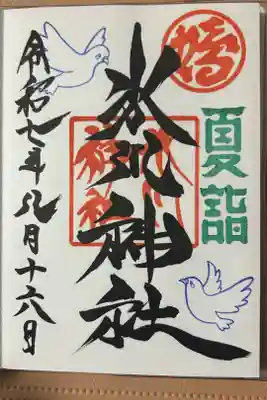 夏詣
氷川神社
令和七年八月十六日